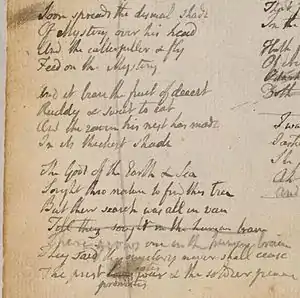 Soon spreads the dismal shade
Of Mystery over his head
And the catterpiller & fly
Feed on the Mystery
And it bears the fruit of deceit
Ruddy & sweet to eat
And the raven his nest has made
In its thickest shade
The Gods of the Earth & Sea
Sought thro nature to find this tree
But their search was all in vain
Till they sought in the human brain
There grows one in the human brain
They said this mystery never shall cease
The priest loves war & the soldier peace
promotes
In the
Hath
Both
I wa
and